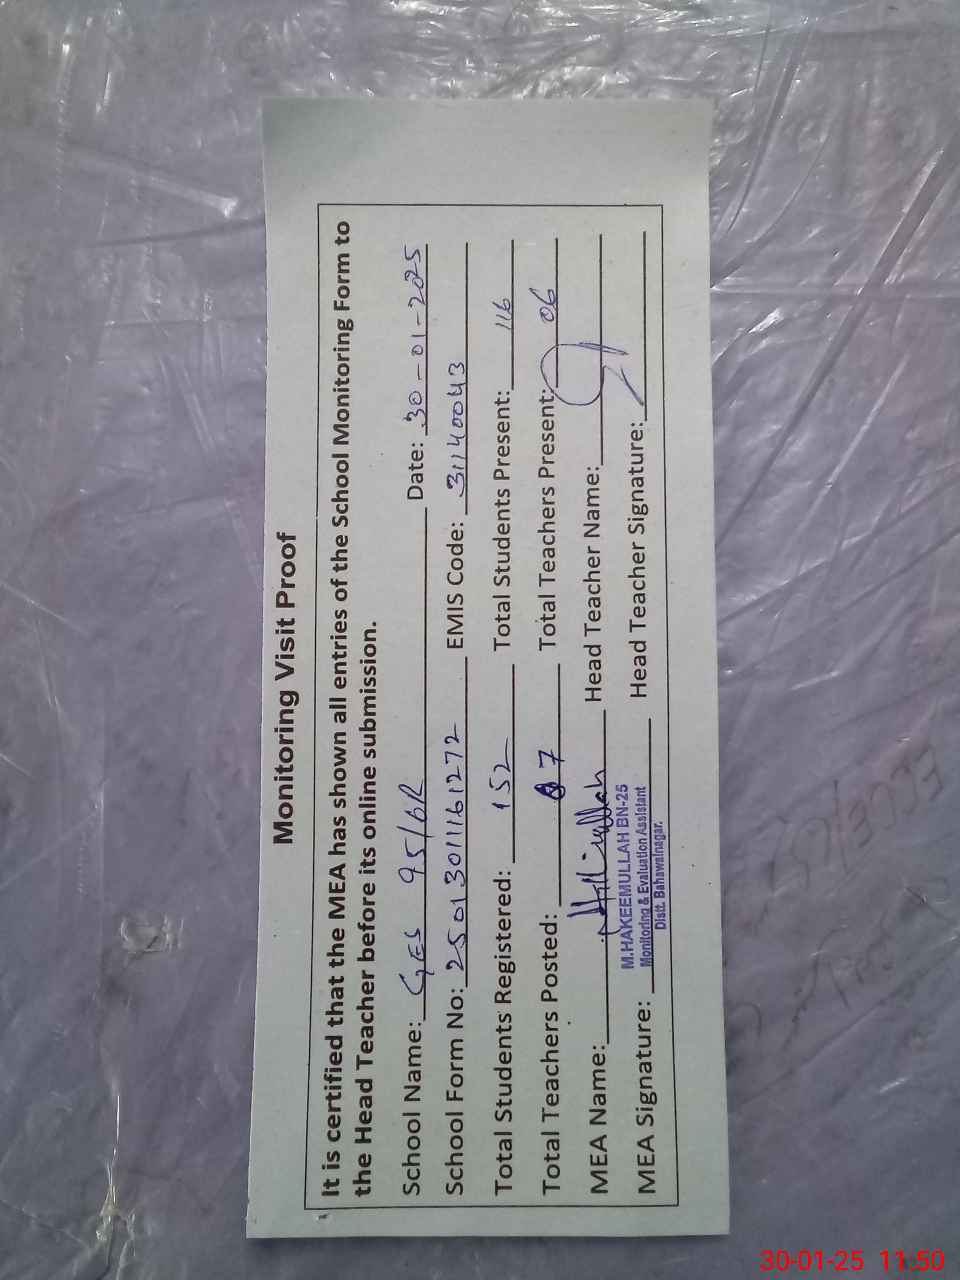 Monitoring Visit Proof
It is certified that the MEA has shown all entries of the School Monitoring Form to
the Head Teacher before its online submission.
School Name: GES 95/6R Date: 30-01-2025
School Form No: 25013011161272 EMIS Code: 31140043
Total Students Registered: 152 Total Students Present: 116
Total Teachers Posted: 07 Total Teachers Present: 06
MEA Name: Head Teacher Name:
M.HAKEEMULLAH BN-25
Monitoring & Evaluation Assistant
Distt. Bahawalnagar.
MEA Signature: Head Teacher Signature:
30-01-25 11:50